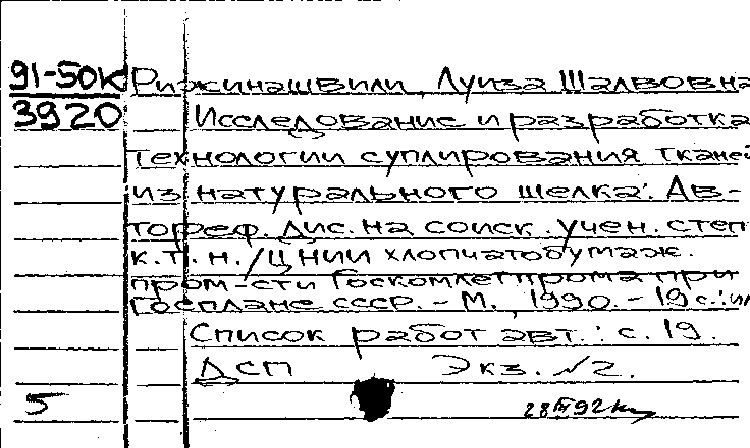 91-50К Рижинашвили, Луиза Шалвовна
3920 Исследование и разработка
технологии суплирования тканей
из натурального шелка: Ав-
тореф. дис. на соиск. учен. степ
к.т.н. /ЦНИИ хлопчатобумаж.
пром-сти Госкомлегпрома при
Госплане СССР. - М., 1990. - 19 с.: ил
Список работ авт.: с. 19.
ДСП Экз. №2.
5